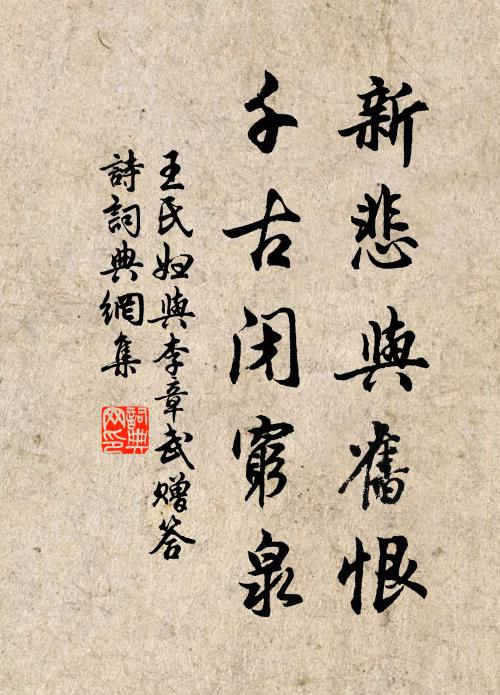 新悲與舊恨
千古閉窮泉
王氏婦與李章武贈答
詩詞典網集
詞典网印